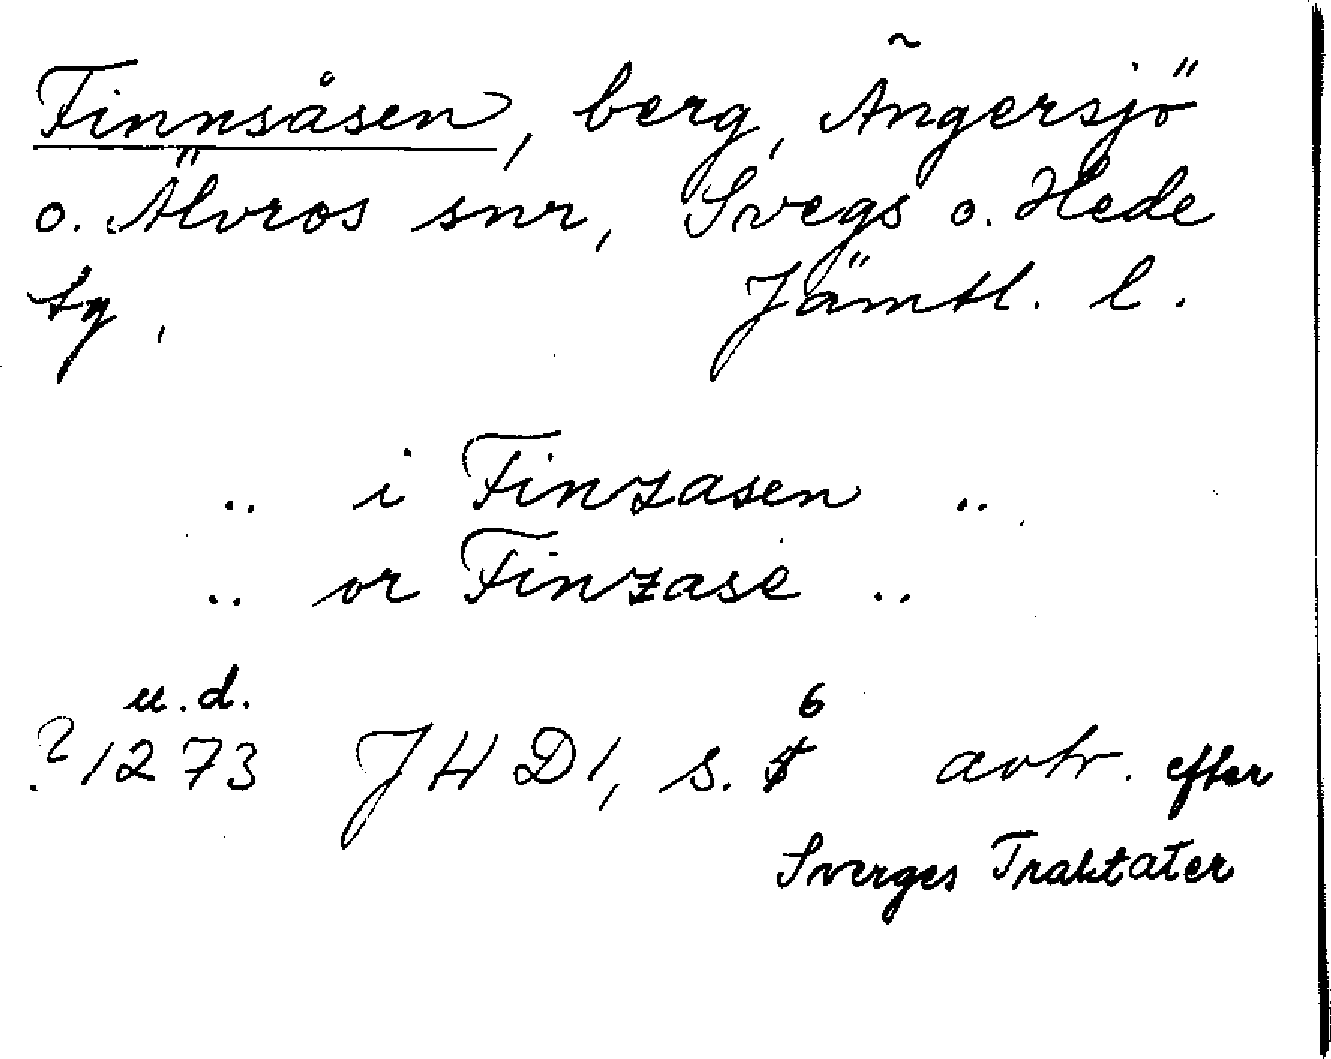 Finnsåsen, berg, Ängersjö
o. Älvros snr, Svegs o. Hede
tg, Jämtl. l.
.. i Finzasen ..
.. or Finzase ..
u.d.
? 1273 JHD1, s. 6 avtr. efter
Sverges Traktater